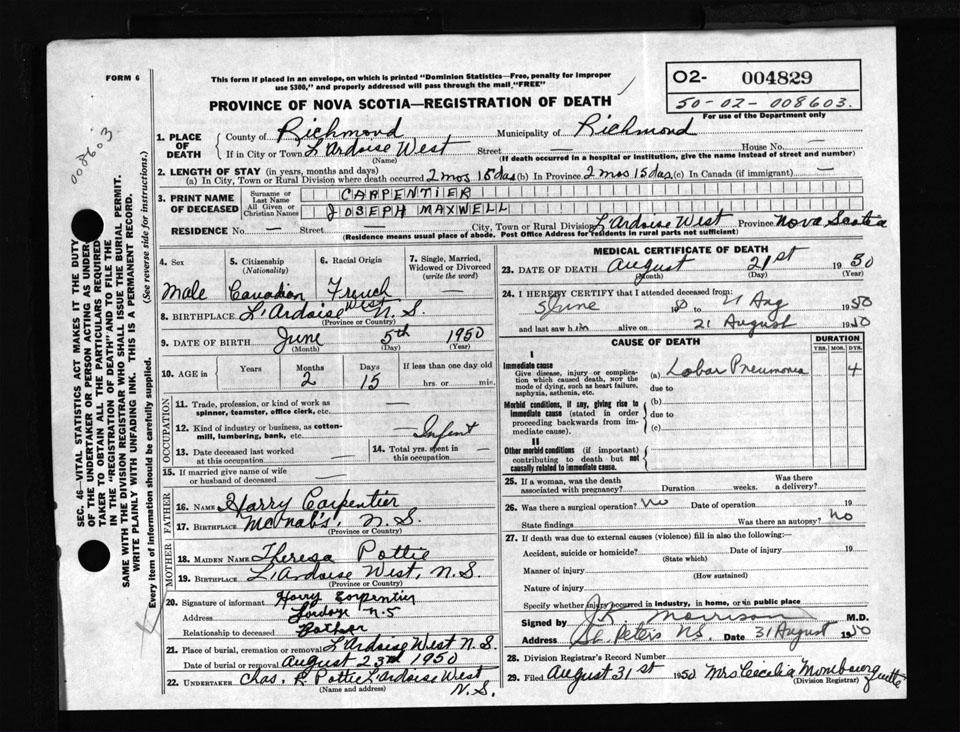 FORM 6
This form if placed in an envelope, on which is printed "Dominion Statistics—Free, penalty for improper
use $300," and properly addressed will pass through the mail "FREE"
O2- 004829
50-02-008603.
For use of the Department only
PROVINCE OF NOVA SCOTIA—REGISTRATION OF DEATH
008603
SEC. 46—VITAL STATISTICS ACT MAKES IT THE DUTY
OF THE UNDERTAKER OR PERSON ACTING AS UNDER-
TAKER TO OBTAIN ALL THE PARTICULARS REQUIRED
IN THE "REGISTRATION OF DEATH" AND TO FILE THE
SAME WITH THE DIVISION REGISTRAR WHO SHALL ISSUE THE BURIAL PERMIT.
WRITE PLAINLY WITH UNFADING INK. THIS IS A PERMANENT RECORD.
Every item of information should be carefully supplied. (See reverse side for instructions.)
1. PLACE OF DEATH
County of Richmond Municipality of Richmond
If in City or Town L'Ardoise West Street — House No. —
(Name) (If death occurred in a hospital or institution, give the name instead of street and number)
2. LENGTH OF STAY (in years, months and days)
(a) In City, Town or Rural Division where death occurred 2 mos 15 das (b) In Province 2 mos 15 das (c) In Canada (if immigrant) —
3. PRINT NAME OF DECEASED
Surname or Last Name CARPENTIER
All Given or Christian Names JOSEPH MAXWELL
RESIDENCE No. — Street — City, Town or Rural Division L'Ardoise West Province Nova Scotia
(Residence means usual place of abode. Post Office Address for residents in rural parts not sufficient)
4. Sex 5. Citizenship (Nationality) 6. Racial Origin 7. Single, Married, Widowed or Divorced (write the word)
Male Canadian French —
8. BIRTHPLACE L'Ardoise West N. S.
(Province or Country)
9. DATE OF BIRTH June 5th 1950
(Month) (Day) (Year)
10. AGE in Years Months 2 Days 15 If less than one day old hrs. or min.
OCCUPATION
11. Trade, profession, or kind of work as spinner, teamster, office clerk, etc. —
12. Kind of industry or business, as cotton-mill, lumbering, bank, etc. Infant
13. Date deceased last worked at this occupation — 14. Total yrs. spent in this occupation —
15. If married give name of wife or husband of deceased —
FATHER
16. NAME Harry Carpentier
17. BIRTHPLACE McNab's, N. S.
(Province or Country)
MOTHER
18. MAIDEN NAME Theresa Pottie
19. BIRTHPLACE L'Ardoise West, N. S.
(Province or Country)
20. Signature of informant Harry Carpentier
Address N. S
Relationship to deceased Father
21. Place of burial, cremation or removal L'Ardoise West N. S.
Date of burial or removal August 23rd 1950
22. UNDERTAKER Chas. L. Pottie L'Ardoise West
(Name and address) N. S.
MEDICAL CERTIFICATE OF DEATH
23. DATE OF DEATH August 21st 1950
(Month) (Day) (Year)
24. I HEREBY CERTIFY that I attended deceased from:
5 June 50 to 21 Aug 1950
and last saw him alive on 21 August 1950
CAUSE OF DEATH DURATION
YRS. MOS. DYS.
I
Immediate cause
Give disease, injury or complication which caused death, NOT the mode of dying, such as heart failure, asphyxia, asthenia, etc.
(a) Lobar Pneumonia 4
due to
Morbid conditions, if any, giving rise to immediate cause (stated in order proceeding backwards from immediate cause).
(b)
due to
(c)
II
Other morbid conditions (if important) contributing to death but not causally related to immediate cause.
25. If a woman, was the death associated with pregnancy? Duration weeks. Was there a delivery?
26. Was there a surgical operation? No Date of operation 19
State findings Was there an autopsy? No
27. If death was due to external causes (violence) fill in also the following:—
Accident, suicide or homicide? Date of injury 19
(State which)
Manner of injury
(How sustained)
Nature of injury
Specify whether injury occurred in industry, in home, or in public place
Signed by Morrison M.D.
Address St. Peters N.S. Date 31 August 1950
28. Division Registrar's Record Number
29. Filed August 31st 1950 Mrs. Cecelia Mombourquette
(Division Registrar)